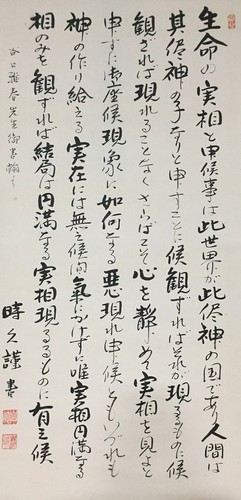 生命の実相と申候事は此世界が此侭神の国であり人間は
其侭神の子なりと申すことに候観ずればそれが現るものに候
観ざれば現れることなくさらばこそ心を静めて実相を見よと
申すに御座候現象に如何なる悪現れ申候ともいづれも
神の作り給える実在には無之候間氣にかけずに唯実相円満なる
相のみを観ずれば結局は円満なる実相現るるものに有之候
谷口雅春先生御書翰より
時久謹書